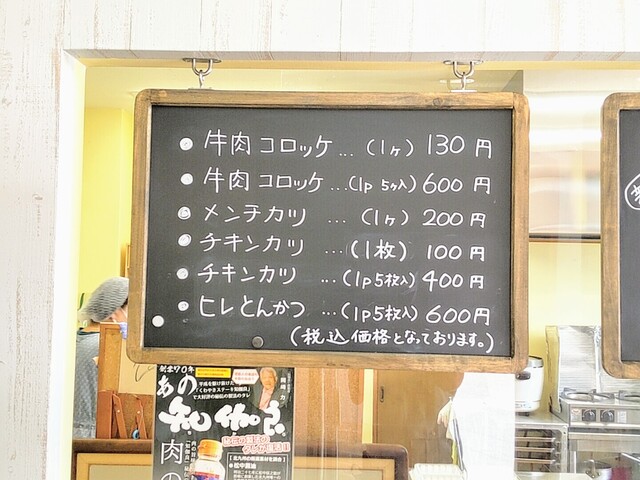 牛肉コロッケ...（1ヶ）130円
牛肉コロッケ...（1p 5ヶ入）600円
メンチカツ ...（1ヶ）200円
チキンカツ ...（1枚）100円
チキンカツ ...（1p5枚入）400円
ヒレとんかつ ...（1p5枚入）600円
（税込価格となっております。）
創業70年
あの
肉の